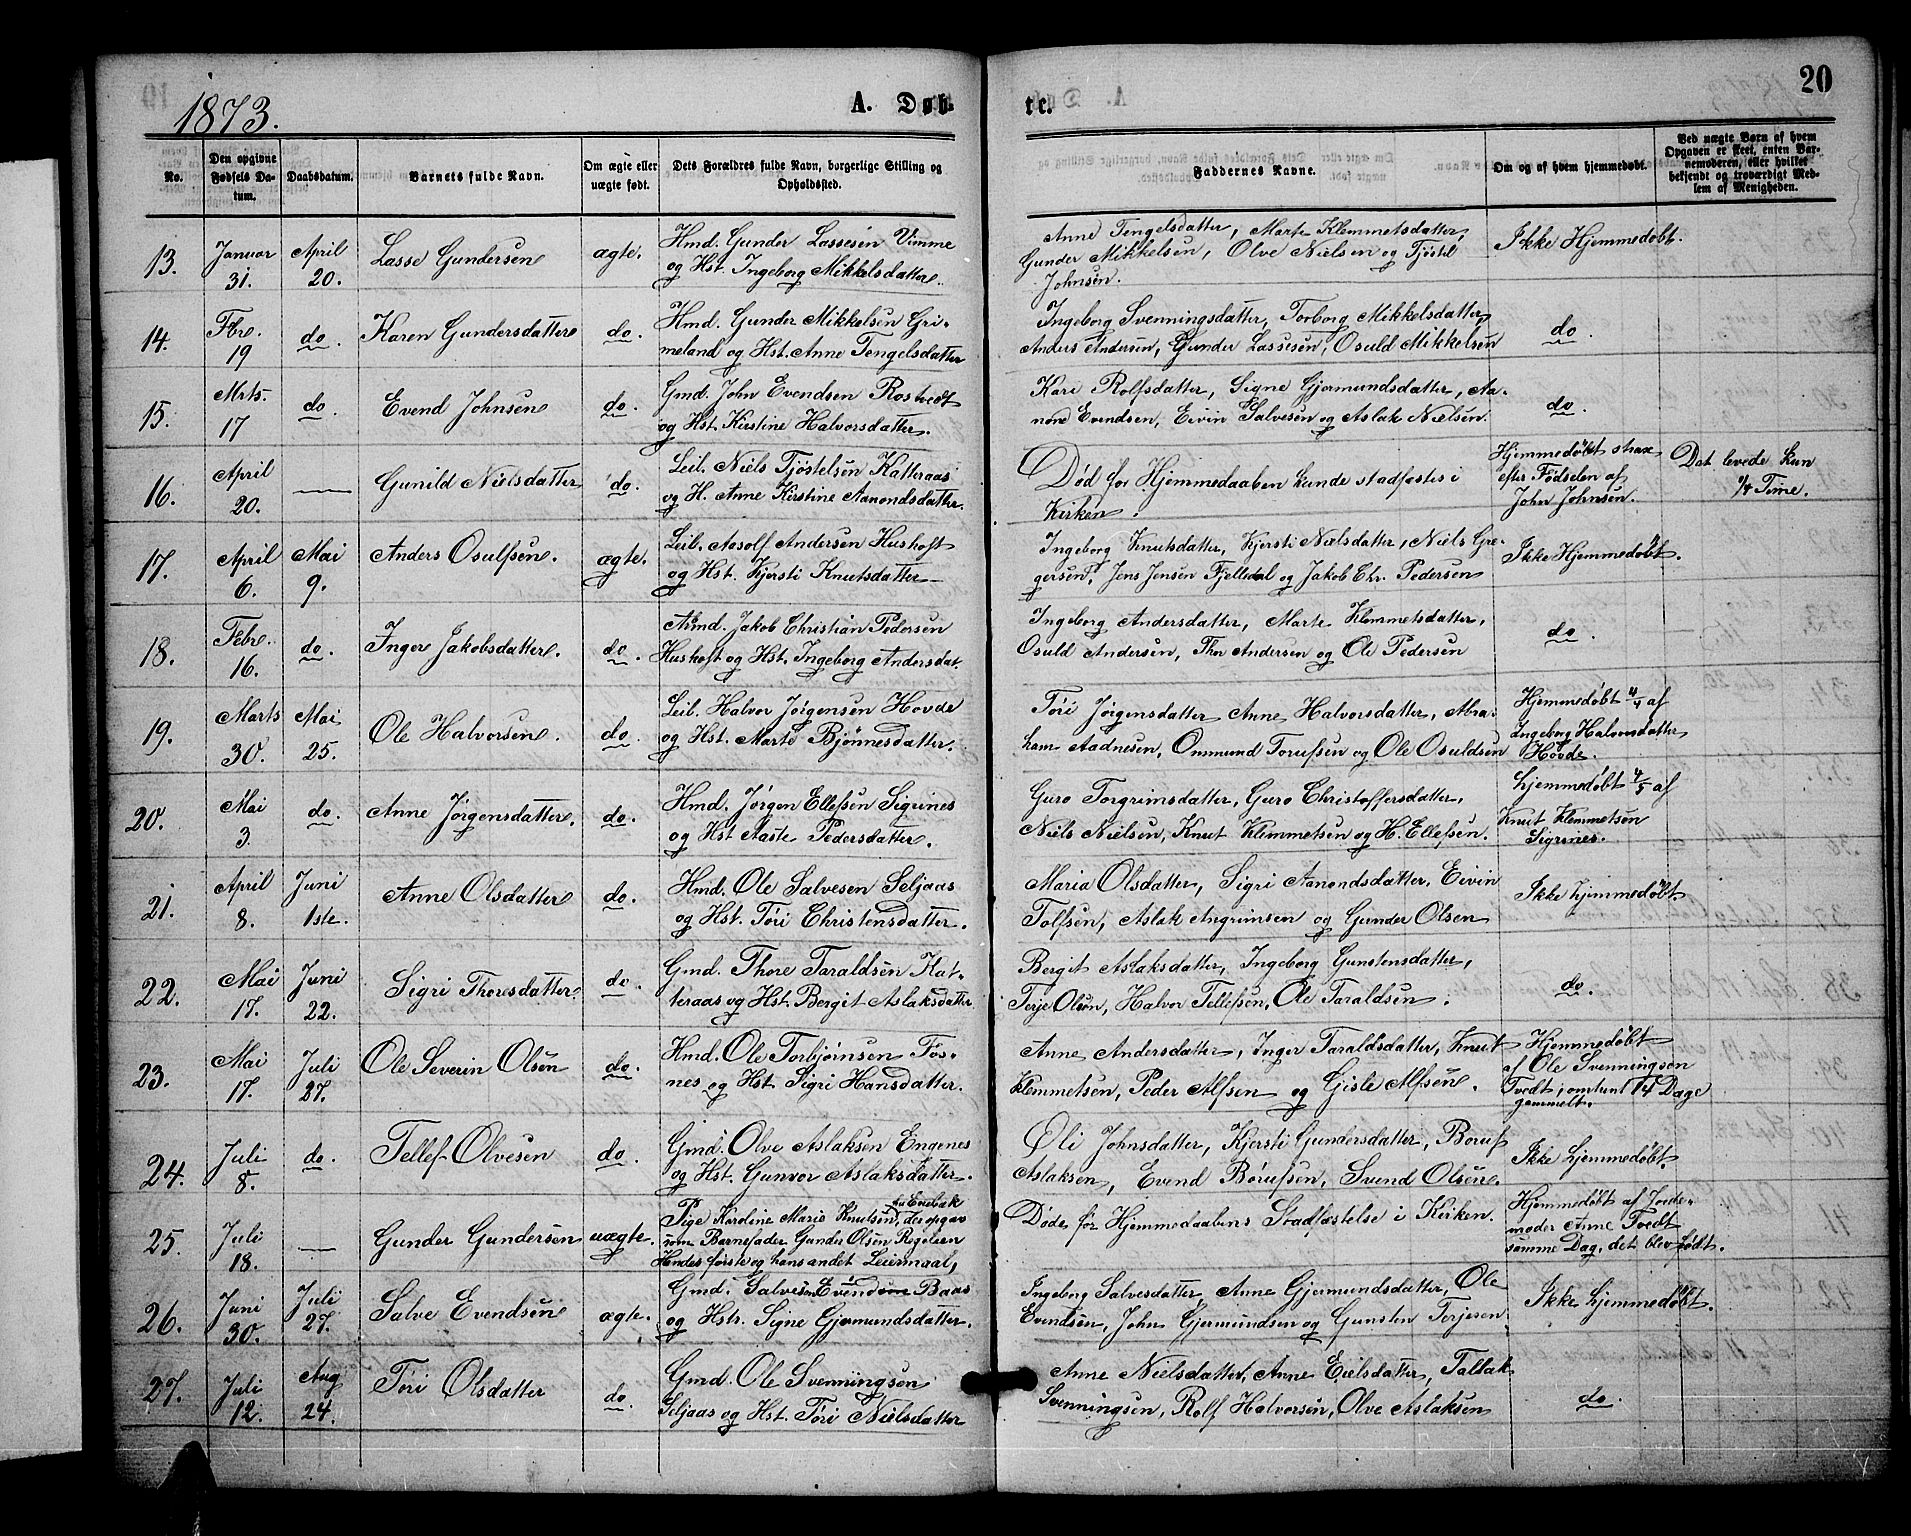 1873.
A. Døb-
te.
20
No.
Den opgivne
Fødsels Da-
tum.
Daabsdatum.
Barnets fulde Navn.
Om ægte eller
uægte født.
Dets Forældres fulde Navn, borgerlige Stilling og
Opholdssted.
Faddernes Navne.
Om og af hvem hjemmedøbt.
Ved uægte Børn af hvem
Opgaven er skeet, enten Bar-
nemoderen, eller hvilket
bekjendt og troværdigt Med-
lem af Menigheden.
13.
Januar
31.
April
20.
Lasse Gundersen
ægte.
Hmd. Gunder Lassesen Vimme
og Hst. Ingeborg Mikkelsdatter.
Anne Tengelsdatter, Marte Klemmetsdatter,
Gunder Mikkelsen, Olve Nielsen og Tjøstel
Johnsen.
Ikke Hjemmedøbt.
14.
Fbre.
19
do.
Karen Gundersdatter
do.
Hmd. Gunder Mikkelsen Gri-
meland og Hst. Anne Tengelsdatter
Ingeborg Svenningsdatter, Torborg Mikkelsdatter,
Anders Andersen, Gunder Lassesen, Osuld Mikkelsen
do.
15.
Mrts.
17
do.
Evend Johnsen
do.
Gmd. John Evendsen Rostvedt
og Hst. Kirstine Halvorsdatter.
Kari Rolfsdatter, Signe Gjermundsdatter, Aa-
none Evendsen, Eivin Salvesen og Aslak Nielsen.
do.
16.
April
20.
Gunild Nielsdatter
do.
Leil. Niels Tjøstelsen Katteraas
og H. Anne Kirstine Aanondsdatter.
Død før Hjemmedaaben kunde stadfæstes i
Kirken.
Hjemmedøbt strax
efter Fødselen af
John Johnsen.
Det levede kun
1/4 Time.
17.
April
6.
Mai
9.
Anders Osulfsen.
ægte.
Leil. Aasolf Andersen Hushoft
og Hst. Kjersti Knutsdatter
Ingeborg Knutsdatter, Kjersti Nielsdatter, Niels Gre-
gersen, Jens Jensen Fjelledal og Jakob Chr. Pedersen
Ikke Hjemmedøbt.
18.
Febre.
16.
do.
Inger Jakobsdatter.
do.
Armd. Jakob Christian Pedersen
Hushoft og Hst. Ingeborg Andersdat.
Ingeborg Andersdatter, Marte Klemmetsdatter,
Osuld Andersen, Thor Andersen og Ole Pedersen
do.
19.
Marts
30.
Mai
25.
Ole Halvorsen.
do.
Leil. Halvor Jørgensen Hovde
og Hst. Marte Bjønnesdatter.
Tøri Jørgensdatter Anne Halvorsdatter, Abra-
ham Aadnesen, Onmund Torufsen og Ole Osuldsen
Hjemmedøbt 4/4 af
Ingeborg Halvorsdatter
Hovde.
20.
Mai
3.
do.
Anne Jørgensdatter.
do.
Hmd. Jørgen Ellefsen Sigrines
og Hst Aaste Pedersdatter.
Guro Torgrimsdatter, Guro Christoffersdatter,
Niels Nielsen, Knut Klemmetsen og H. Ellefsen.
hjemmedøbt 4/5 af
Knut Klemmetsen
Sigrines.
21.
April
8.
Juni
1ste.
Anne Olsdatter
do.
Hmd. Ole Salvesen Seljaas
og Hst. Tøri Christensdatter.
Maria Olsdatter, Sigri Aanondsdatter, Eivin
Tolfsen, Aslak Angrimsen og Gunder Olsen
Ikke hjemmedøbt.
22.
Mai
17.
Juni
22.
Sigri Thoresdatter.
do.
Gmd. Thore Taraldsen Kat-
teraas og Hst. Bergit Aslaksdatter
Bergit Aslaksdatter, Ingeborg Gunstensdatter,
Terje Olsen, Halvor Tellefsen, Ole Taraldsen.
do.
23.
Mai
17.
Juli
27.
Ole Severin Olsen
do.
Hmd. Ole Torbjørnsen Fos-
nes og Hst Sigri Hansdatter.
Anne Andersdatter, Inger Taraldsdatter, Knut
Klemmetsen, Peder Alfsen og Gisle Alfsen.
Hjemmedøbt
af Ole Svenningsen
Tvedt, omtrent 14 Dage
gammelt.
24.
Juli
8.
do.
Tellef Olvesen
do.
Gmd. Olve Aslaksen Engenes
og Hst. Gunvor Aslaksdatter.
Øli Johnsdatter, Kjersti Gundersdatter, Boruf
Aslaksen, Evend Børufsen, Svend Olsen.
Ikke hjemmedøbt.
25.
Juli
18.
Gunder Gundersen
uægte.
Pige Karoline Marie Knutsen, der opgav
som Barnefader Gunder Olsen Regeleen
Hendes første og hans andet Leiermaal,
Døde før Hjemmedaabens Stadfæstelse i Kirken.
Hjemmedøbt af Jorde-
moder Anne Tvedt
samme Dag, det blev født.
26.
Juni
30.
Juli
27.
Salve Evendsen
ægte.
Gmd. Salvesen Evend Baas
og Hstr. Signe Gjermundsdatter.
Ingeborg Salvesdatter, Anne Gjermundsdatter, Ole
Evendsen, John Gjermundsen og Gunsten Terjesen
Ikke hjemmedøbt.
27.
Juli
12.
Aug
24.
Tøri Olsdatter
do.
Gmd. Ole Svenningsen
Seljaas og Hst. Tøri Nielsdatter
Anne Nielsdatter, Anne Eielsdatter, Tallak
Svenningsen, Rolf Halvorsen, Olve Aslaksen
do.